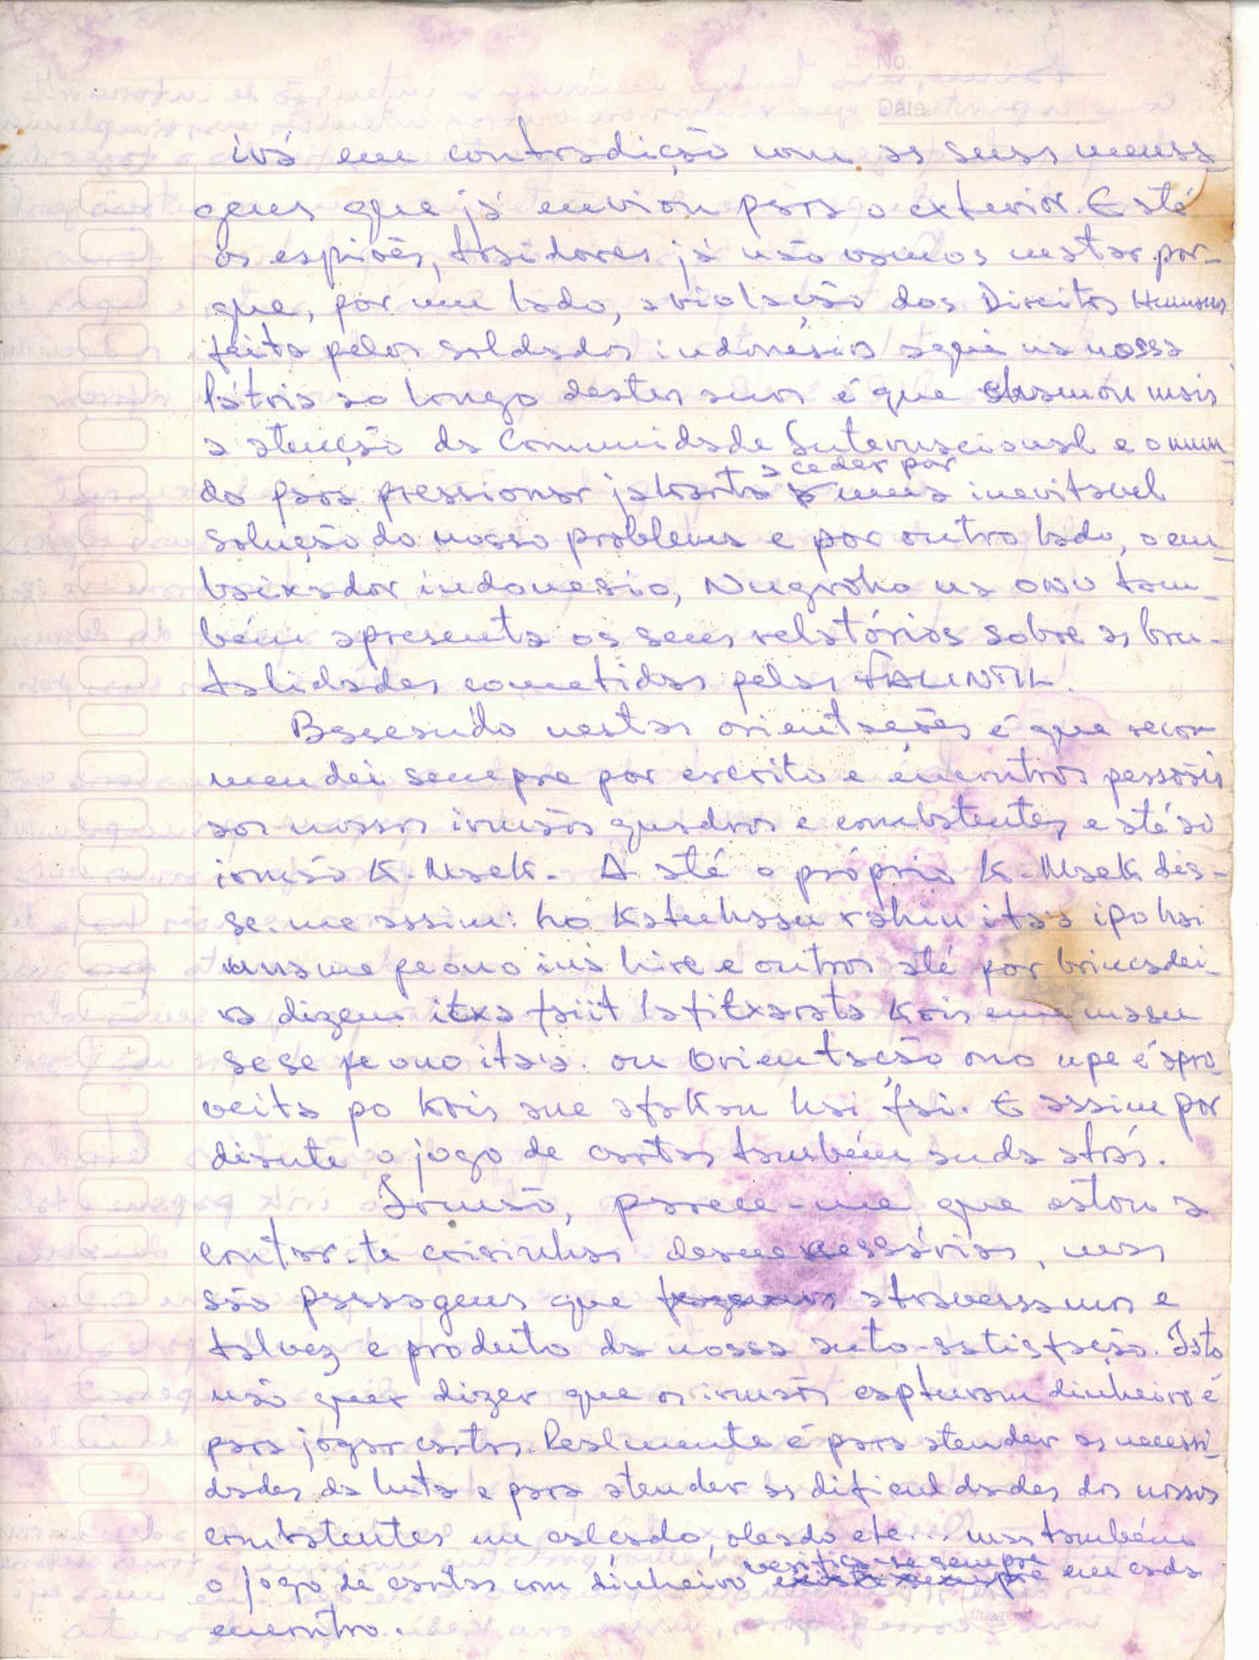 No.
Data
irá em contradição com as suas mensa-
gens que já enviou para o exterior. E até
os espiões, traidores já não vamos matar por-
que, por um lado, a violação dos Direitos Humanos
feita pelos soldados indonésios aqui na nossa
Pátria ao longo destes anos é que chamou mais
a atenção da Comunidade Internacional e o mun-
do para pressionar jakarta a ceder por uma inevitavel
solução do nosso problema e por outro lado, o em-
baixador indonesio, Nugroho na ONU tam-
bém apresenta os seus relatórios sobre as bru-
talidades cometidas pelas FALINTIL.
Baseando nestas orientações é que reco-
mendei sempre por escrito e encontros pessoais
aos nossos irmãos quadros e combatentes e até ao
irmão K. Maek. A até o próprio K. Maek dis-
se-me assim: ho Katuhasu rahin itaa ipo hai
ana me pe ono ina hire e outros até por brincadei-
ra dizem itxa faiit lafitxarata Kois masu
sese pe ono itaa. ou Orientação ono upe é apro-
veita po kois ane afakau hai fai. E assim por
diante o jogo de cartas também anda atrás.
Irmão, parece-me que estou a
contar-te coisinhas desnecessárias, mas
são passagens que atravessamos e
talvez e produto da nossa auto-satisfação. Isto
não quer dizer que os irmãos capturam dinheiro é
para jogar cartas. Realmente é para atender as necessi-
dades da luta e para atender as dificuldades dos nossos
combatentes em calçado, oleado etc... mas também
o jogo de cartas com dinheiro verifica-se sempre em cada
encontro.